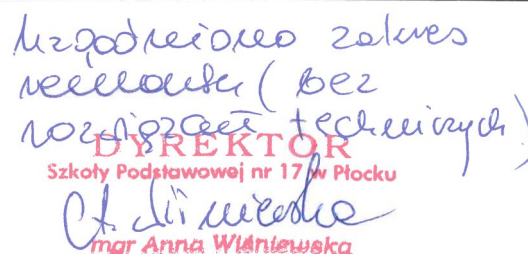 Uzgodniono zakres
remontu (bez
rozwiązań technicznych)
DYREKTOR
Szkoły Podstawowej nr 17 w Płocku
A. Wiśniewska
mgr Anna Wiśniewska